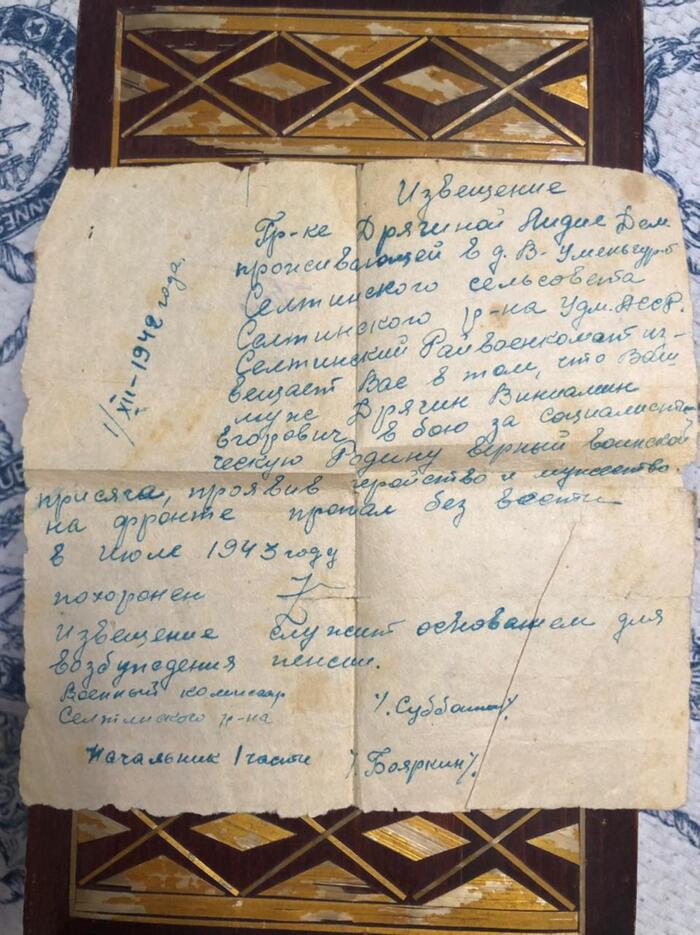 Извещение
Гр-ке Дрягиной Лидие Дем
проживающей в д. В-Уменьгурт
Селтинского сельсовета
Селтинского р-на Удм. АССР.
Селтинский Райвоенкомат из-
вещает Вас в том, что Ваш
муж Дрягин Виниамин
Егорович, в бою за социалисти
ческую Родину верный воинской
присяга, проявив геройство и мужество
на фронте пропал без вести
в июле 1943 году
похоронен
Извещение служит основанием для
возбуждения пенсии.
Военный комиссар
Селтинского р-на /. Субботин/.
Начальник 1 части /. Бояркин/.
1/XII-1942 года.